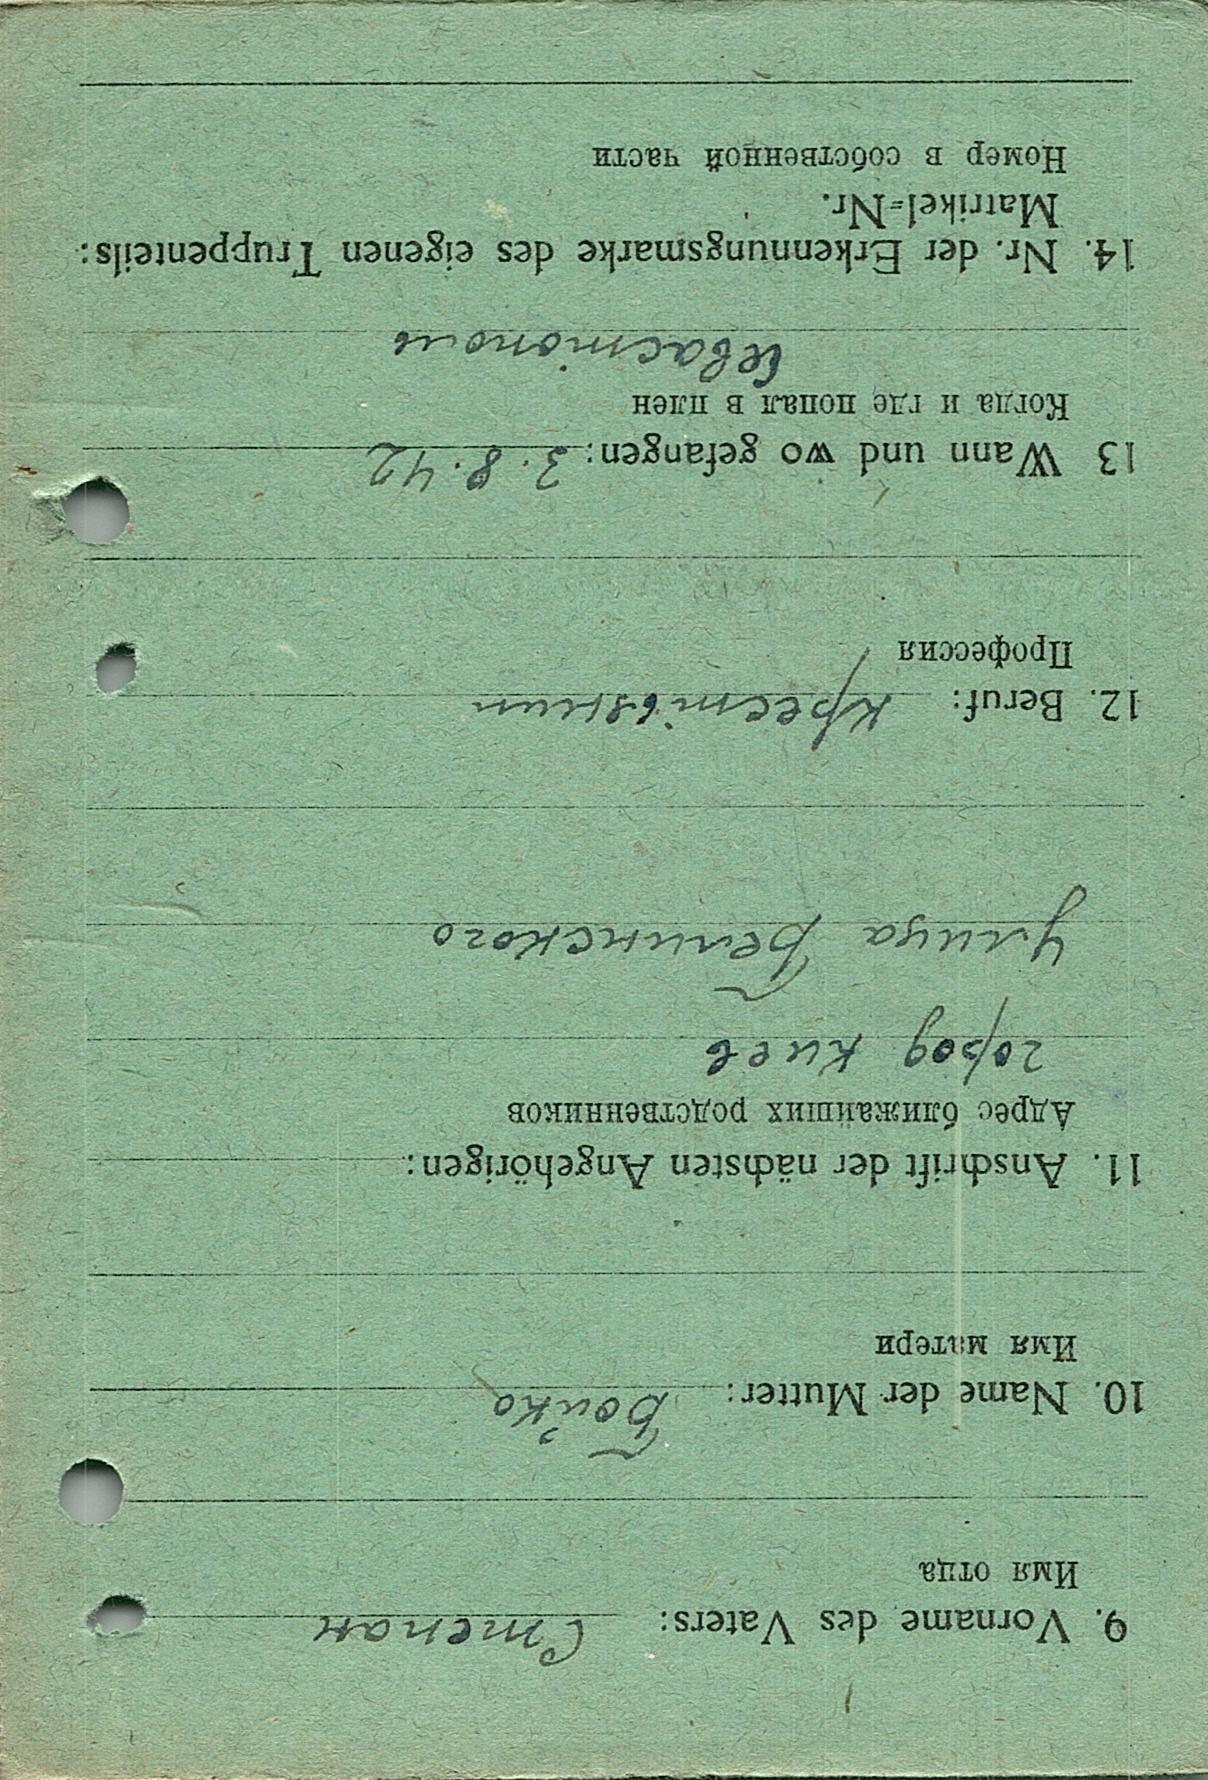 9. Vorname des Vaters: Степан
Имя отца
10. Name der Mutter: Бойко
Имя матери
11. Anschrift der nächsten Angehörigen:
Адрес ближайших родственников
город киев
улица Белинского
12. Beruf: крестьянин
Профессия
13 Wann und wo gefangen: 3.8.42
Когда и где попал в плен
Севастополь
14. Nr. der Erkennungsmarke des eigenen Truppenteils:
Matrikel=Nr.
Номер в собственной части